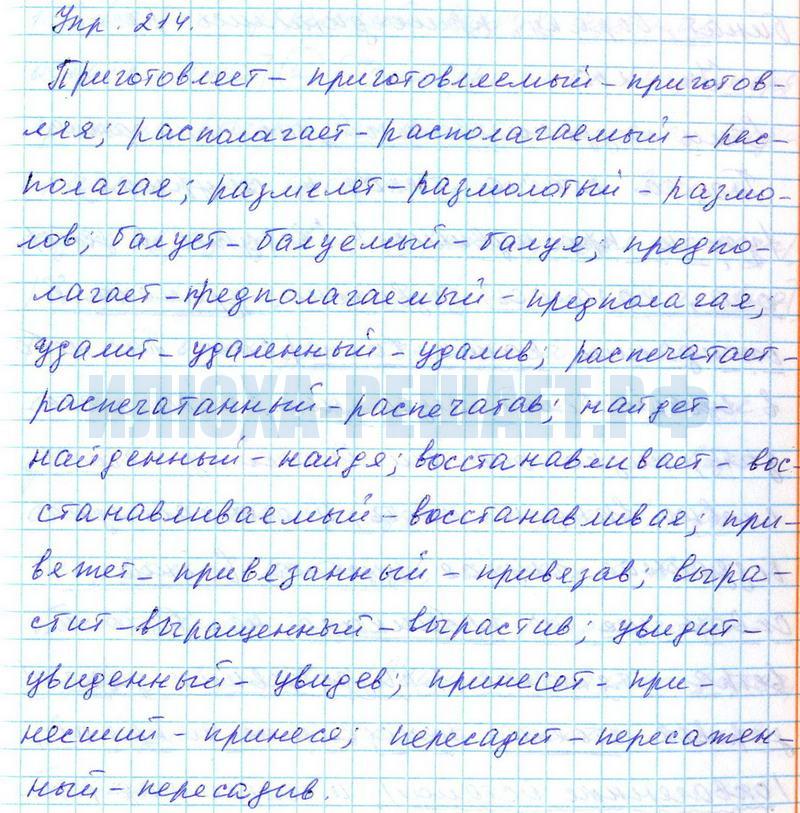 Упр. 214.
Приготовляет – приготовляемый – приготов-
ляя; располагает – располагаемый – рас-
полагая; размелет – размолотый – размо-
лов; балует – балуемый – балуя; предпо-
лагает – предполагаемый – предполагая;
удалит – удаленный – удалив; распечатает –
ИЛЮХА-РЕШАЕТ.РФ
распечатанный – распечатав; найдет –
найденный – найдя; восстанавливает – вос-
станавливаемый – восстанавливая; при-
вяжет – привязанный – привязав; выра-
стит – выращенный – вырастив; увидит –
увиденный – увидев; принесет – при-
несший – принеся; пересадит – пересажен-
ный – пересадив.